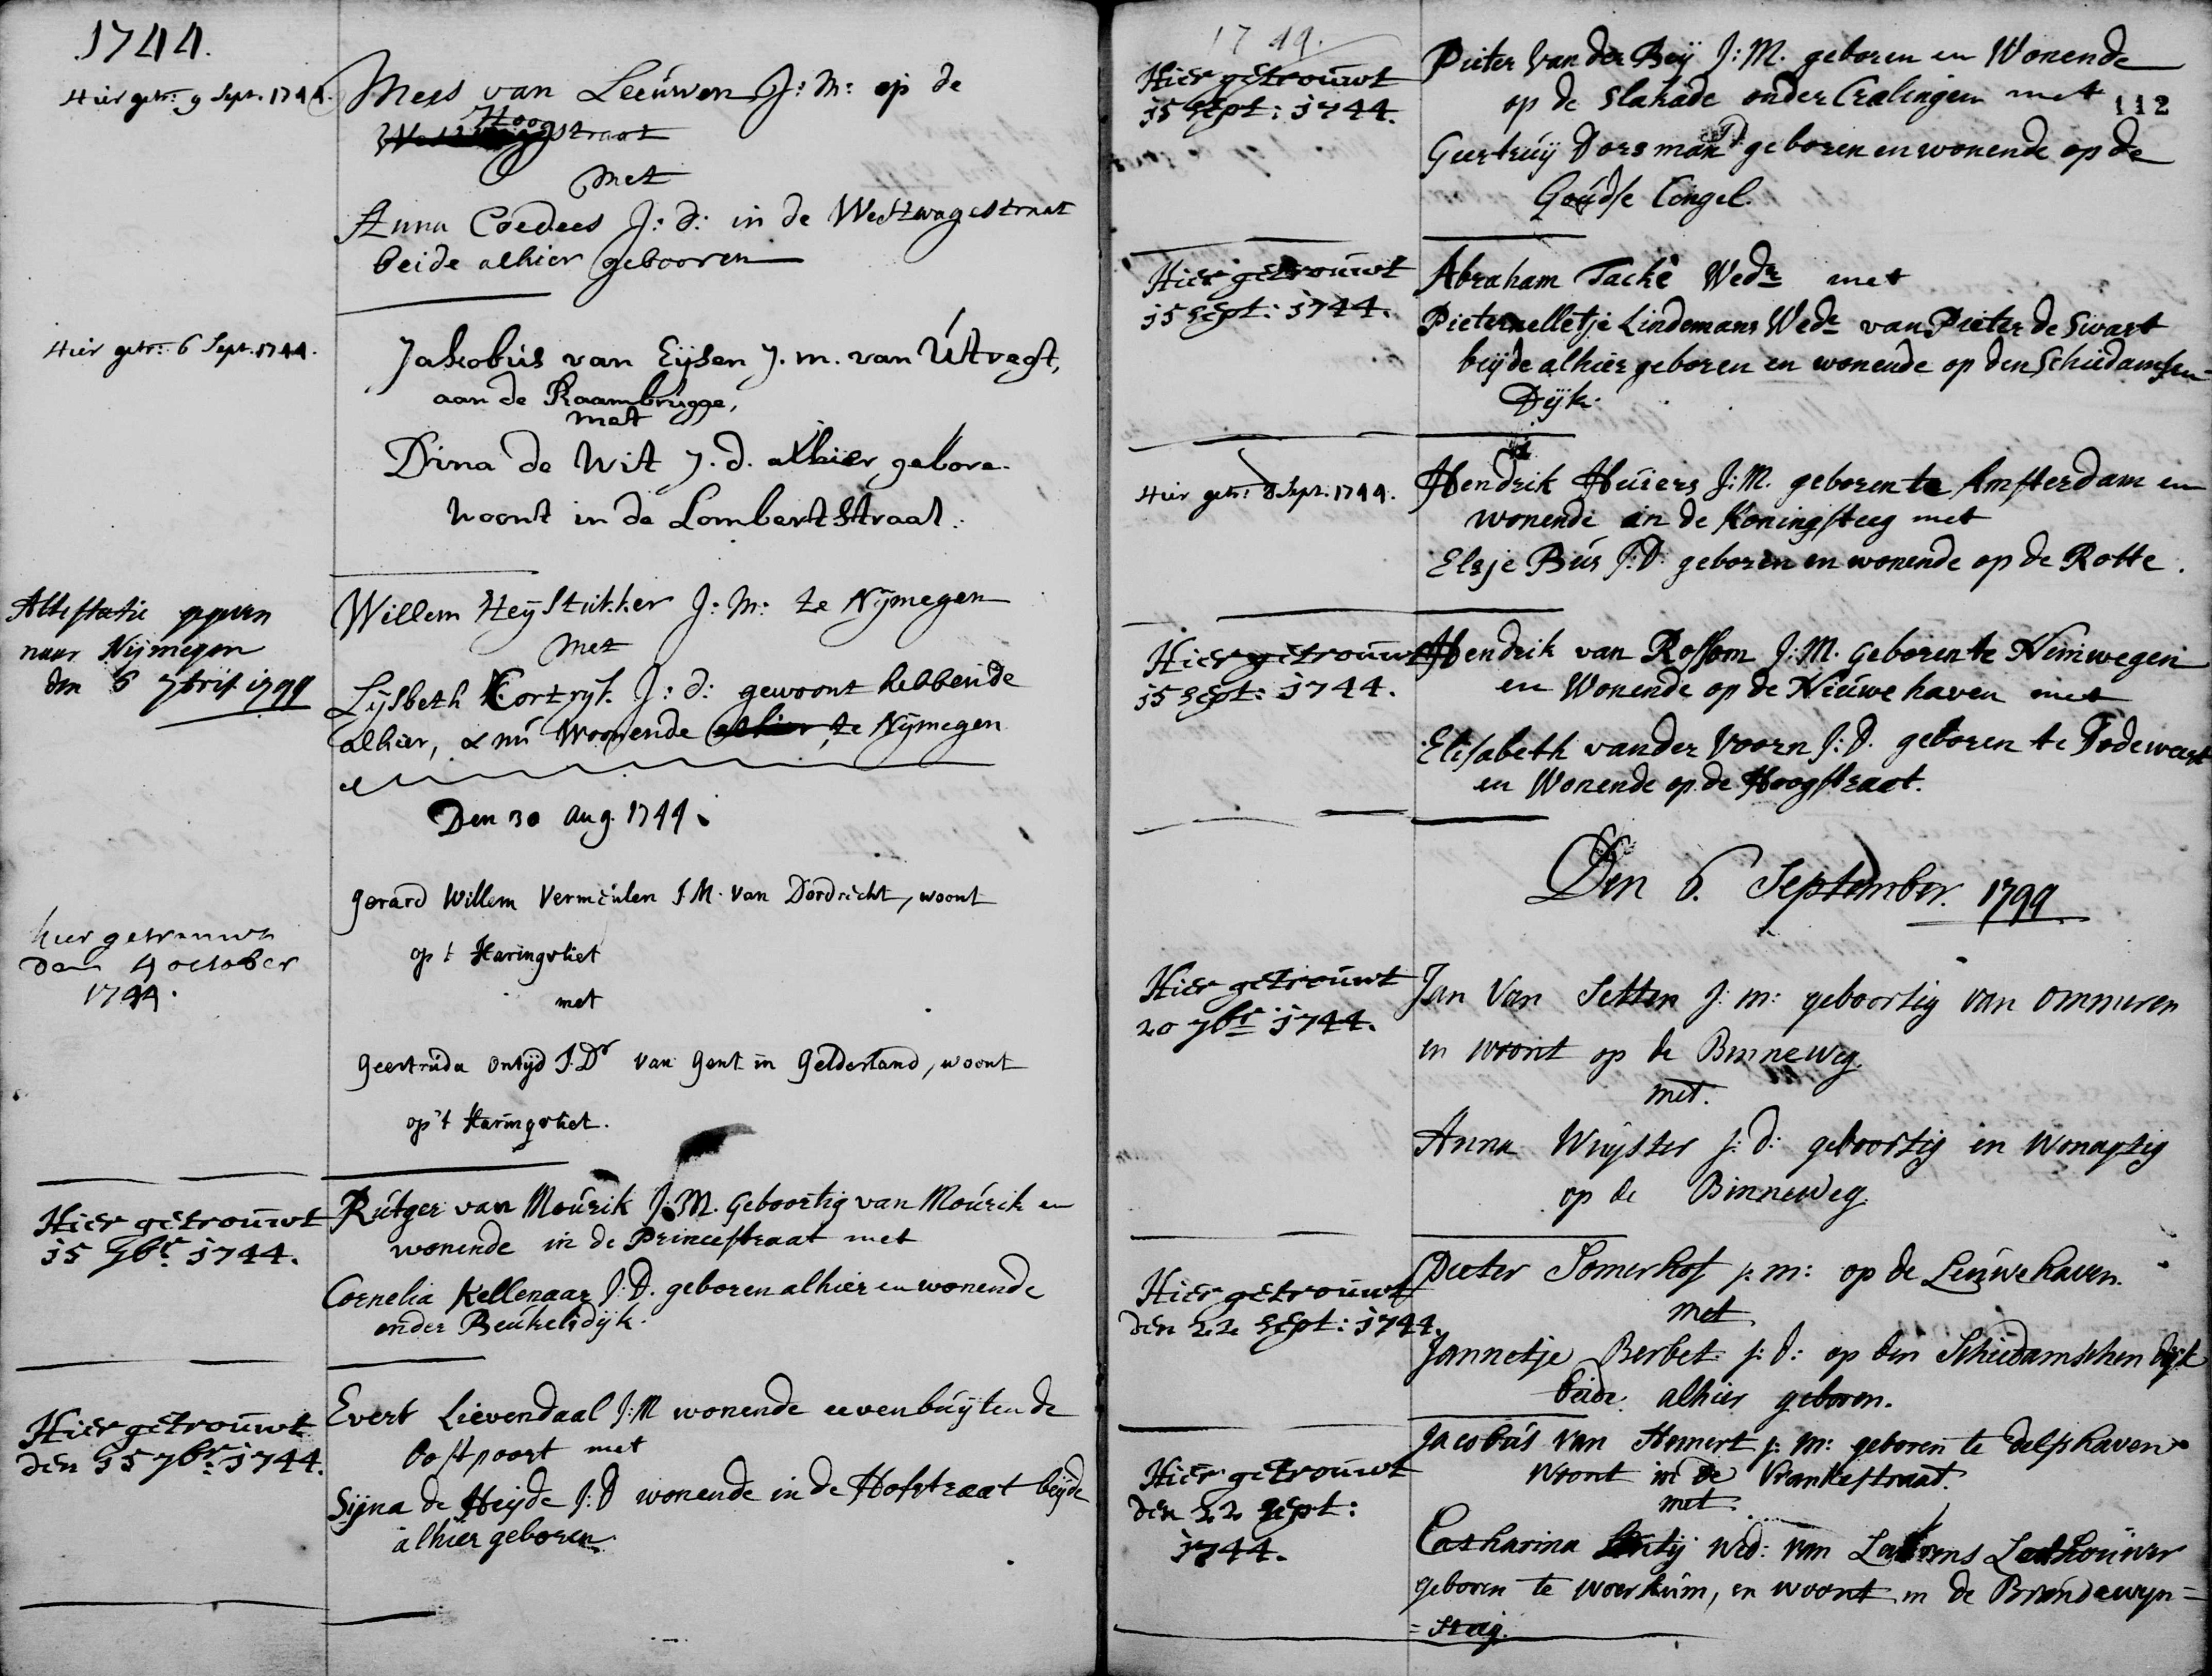 1744.
Hier getr: 9 Sept. 1744.
Mees van Leeuwen J: m: op de
Hoog
straat
met
Anna Coedees J: d: in de Westwagestraat
beide alhier gebooren
Hier getr: 6 Sept. 1744.
Jakobus van Eijsen J. m. van Utregt,
aan de Raambrugge,
met
Dina de Wit J. d. alhier gebore.
woont in de Lombertstraat.
Attestatie gegeven
naar Nijmegen
den 6 7bris 1744
Willem Heystukker J: m: te Nijmegen
met
Lijsbeth Kortryk J: d: gewoont hebbende
alhier, & nu woonende alhier te Nijmegen
Den 30 Aug. 1744.
hier getrouwt
den 4 october
1744.
Gerard Willem Vermeulen J. M. van Dordrecht, woont
op 't Haringvliet
met
Geertruda Ontijd J. Dr van Gent in Gelderland, woont
op 't Haringvliet.
Hier getrouwt
15 7br. 1744.
Rutger van Mourik J. M. geboortig van Mourik en
wonende in de Princestraat met
Cornelia Kellenaar J: D. geboren alhier en wonende
onder Beukelsdijk.
Hier getrouwt
den 15 7br. 1744.
Evert Lievendaal J: M wonende even buijten de
Oostpoort met
Sijna de Heijde J: D wonende in de Hofstraat beijde
alhier geboren.
1744.
Hier getrouwt
15 Sept: 1744.
Pieter van der Beij J: M. geboren en Wonende
op de Slakade onder Cralingen met
112
Geertruij Dorsman JD geboren en wonende op de
Goudse Cengel.
Hier getrouwt
15 Sept: 1744.
Abraham Tacké Wedr met
Pieternelletje Lindemans Wedr van Pieter de Swart
beijde alhier geboren en wonende op den Schiedamsen
Dijk.
Hier getr: 8 Sept. 1744.
Hendrik Heuiers J: M. geboren te Amsterdam en
wonende in de Koningsteeg met
Elsje Bus J: D: geboren en wonende op de Rotte.
Hier getrouwt
15 Sept: 1744.
Hendrik van Rossom J: M. geboren te Nimwegen
en Wonende op de Nieuwe haven met
Elisabeth van der Voorn J: D. geboren te Dodewaert
en Wonende op de Hoogstraat.
Den 6. September. 1744
Hier getrouwt
20 7br 1744.
Jan Van Setten J: m: geboortig van Ommeren
en woont op de Binneweg.
met.
Anna Wuyster J: d: geboortig en wonagtig
op de Binneweg.
Hier getrouwt
den 22 Sept: 1744.
Pieter Somerhof J: m: op de Leuwehaven.
met
Jannetje Berbet J: d: op den Schiedamschen dijk
beide alhier geboren.
Hier getrouwt
den 22 Sept:
1744.
Jacobus van Hemert J: m: geboren te Delfshaven
woont in de Vrankestraat.
met
Catharina wed: van Laurens Leshouwer
geboren te Woerkum, en woont in de Brandewyn=
=steeg.